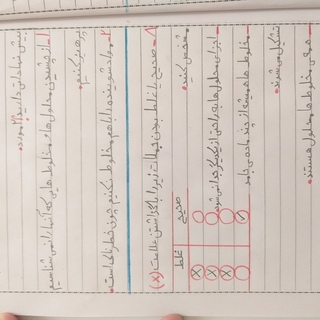 پیش نهاداتی دارید؟ ۲ مورد.
۱_از چشیدن محلول ها و مخلوط هایی که آنها را نمی شناسیم
پرهیز کنیم.
۲_مواد شوینده را باهم مخلوط نکنیم چون خطرناک است.
۸_ صحیح یا غلط بودن جملات زیر را با گذاشتن علامت (x)
مشخص کنید. صحیح غلط
_اجزای محلول ها به راحتی از یکدیگر جدا نمی شود.
_مخلوط ها همیشه از چند ماده ی جامد
تشکیل می شوند.
_همه ی مخلوط ها محلول هستند.